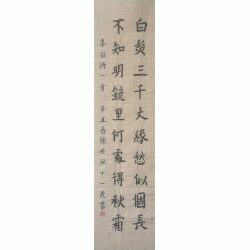 白髮三千丈緣愁似個長
不知明鏡里何處得秋霜
李白詩一首 辛丑春陳十一歲書